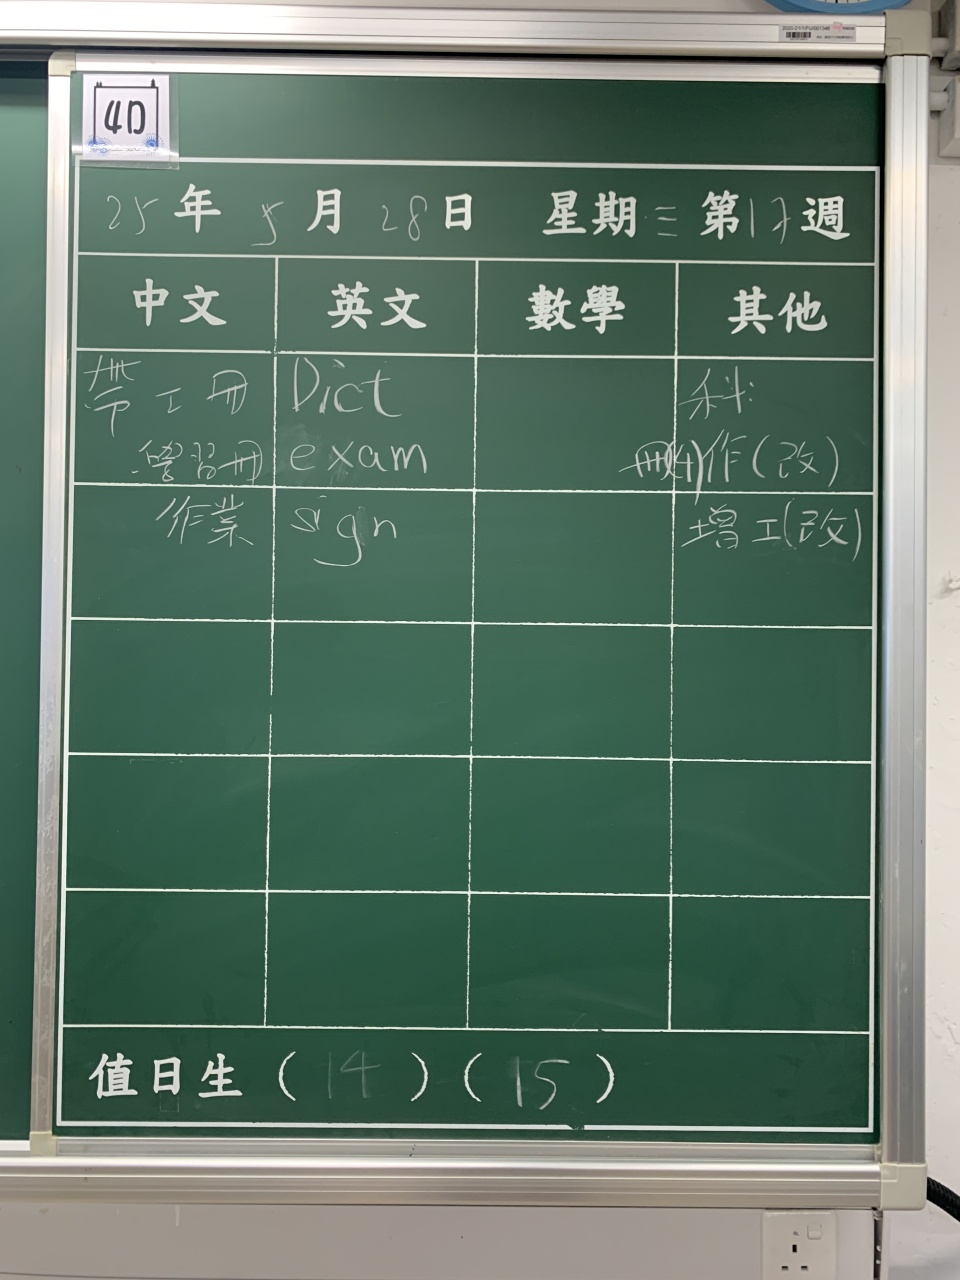 4D
25年5月28日 星期三第17週
中文 英文 數學 其他
帶工冊 Dict 科:
學習冊 exam 冊(4)作(改)
作業 sign 增工(改)
值日生(14)(15)